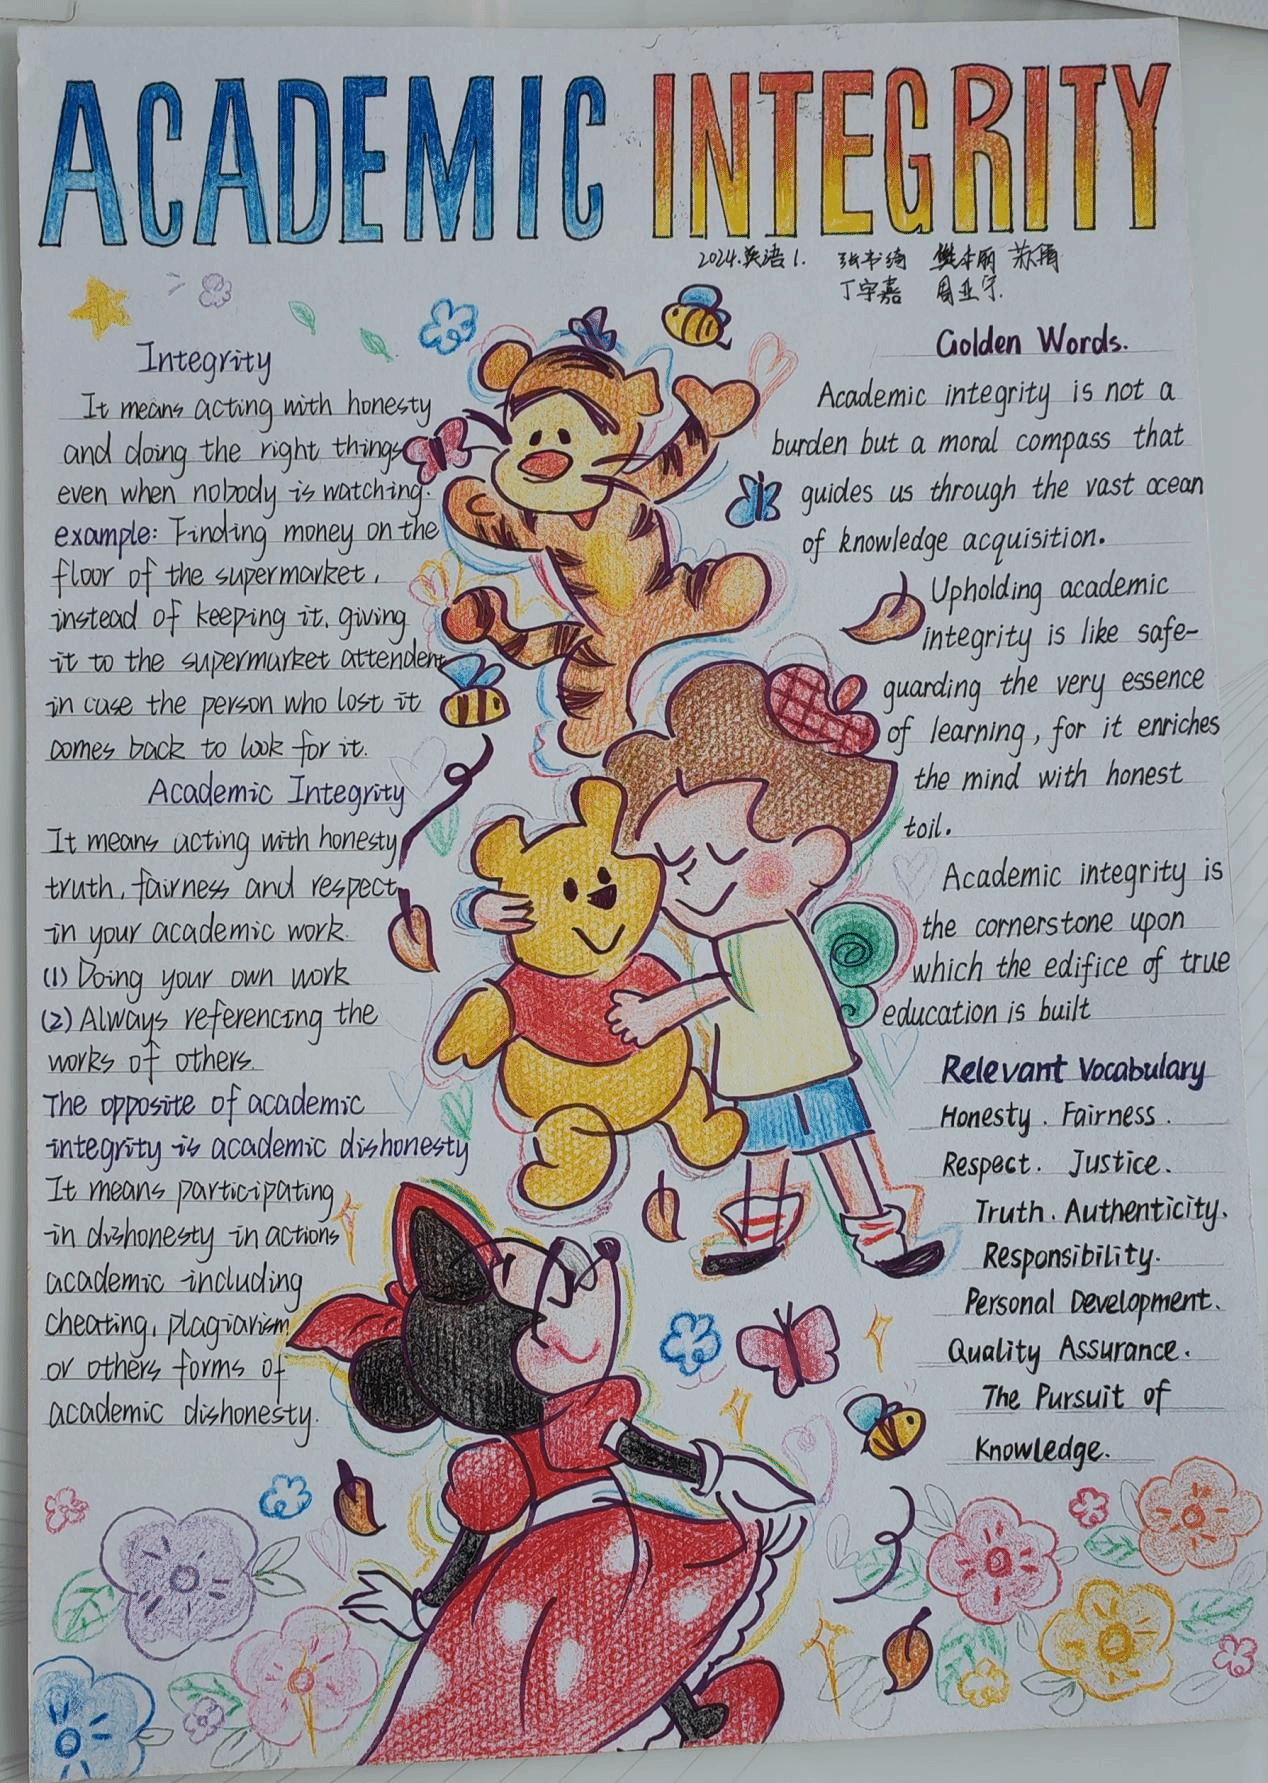 ACADEMIC INTEGRITY
2024.英语1. 张书绮 樊本丽 苏倩
丁宇嘉 周亚宁.
Integrity
It means acting with honesty
and doing the right things
even when nobody is watching.
example: Finding money on the
floor of the supermarket,
instead of keeping it, giving
it to the supermarket attendent
in case the person who lost it
comes back to look for it.
Academic Integrity
It means acting with honesty
truth, fairness and respect
in your academic work.
(1) Doing your own work
(2) Always referencing the
works of others.
The opposite of academic
integrity is academic dishonesty
It means participating
in dishonesty in actions
academic including
cheating, plagiarism
or others forms of
academic dishonesty.
Golden Words.
Academic integrity is not a
burden but a moral compass that
guides us through the vast ocean
of knowledge acquisition.
Upholding academic
integrity is like safe-
guarding the very essence
of learning, for it enriches
the mind with honest
toil.
Academic integrity is
the cornerstone upon
which the edifice of true
education is built
Relevant Vocabulary
Honesty. Fairness.
Respect. Justice.
Truth. Authenticity.
Responsibility.
Personal Development.
Quality Assurance.
The Pursuit of
Knowledge.